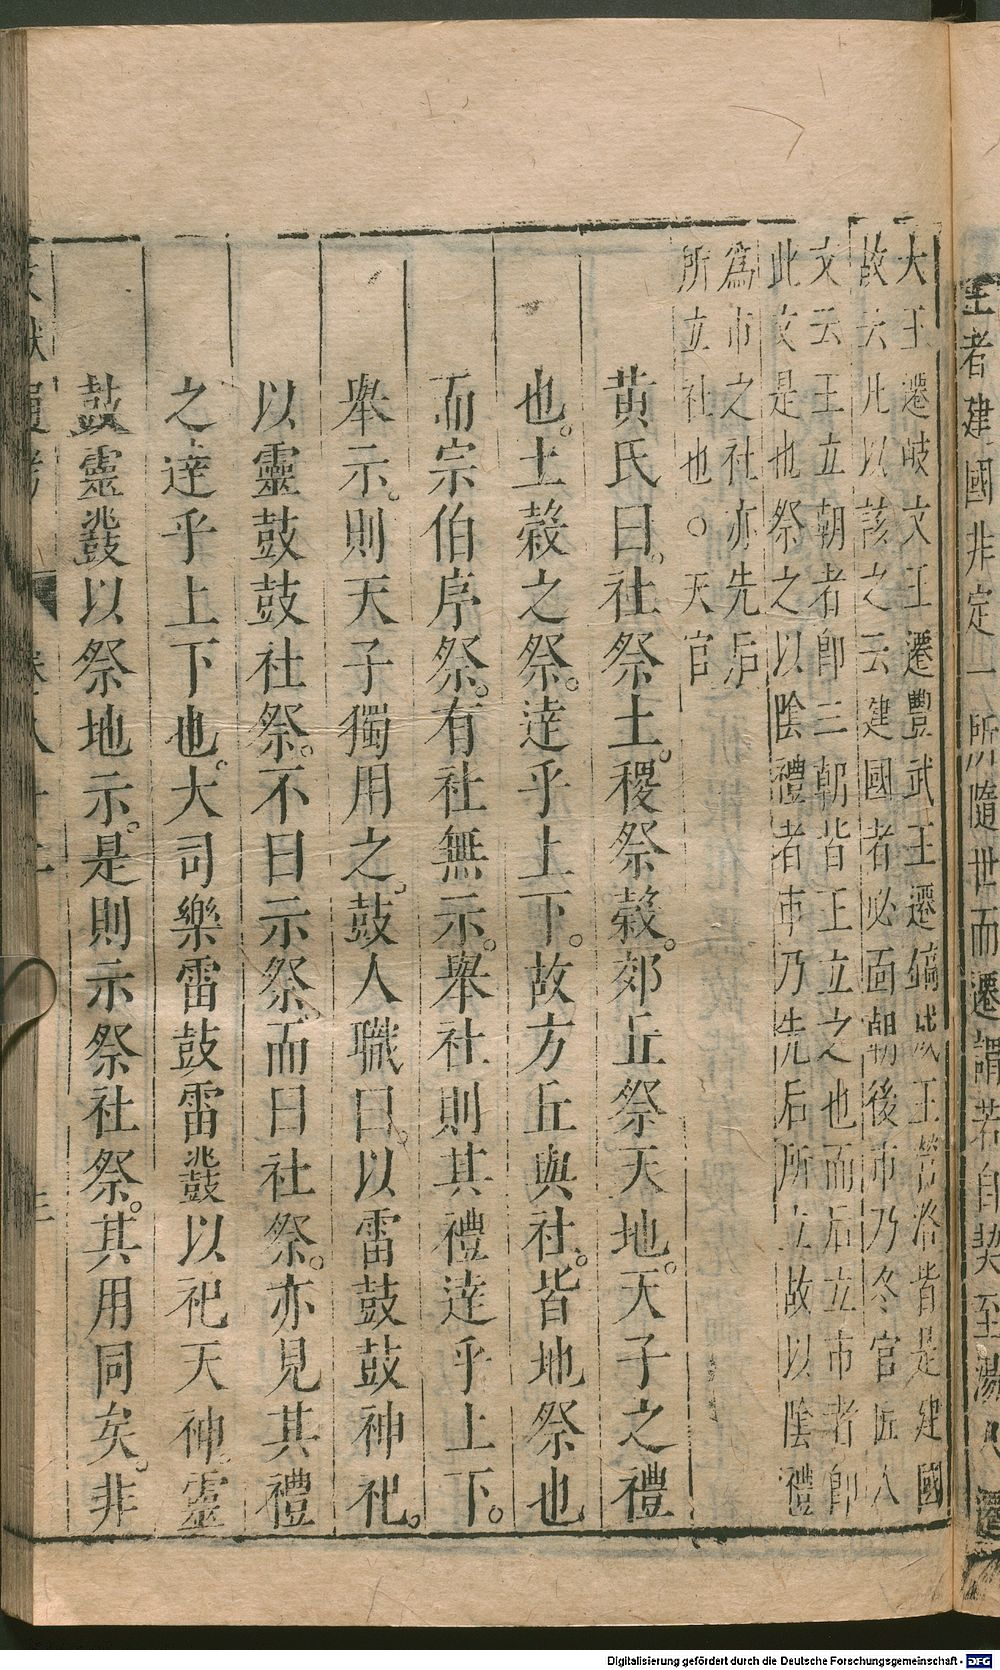 王者建國非定一所隨世而遷謂若自契至湯八遷
大王遷岐文王遷豐武王遷鎬成王營洛皆是建國
故云此以該之云建國者必面朝後市乃冬官匠人
文云王立朝者即三朝皆王立之也而后立市者即
此文是也祭之以陰禮者市乃先后所立故以陰禮
爲市之社亦先后
所立社也○天官
黃氏曰社祭土。稷祭穀。郊丘祭天地。天子之禮
也。土穀之祭。達乎上下。故方丘與社。皆地祭也
而宗伯序祭。有社無示。舉社則其禮達乎上下。
舉示。則天子獨用之。鼓人職曰。以雷鼓鼓神祀。
以靈鼓鼓社祭。不曰示祭。而曰社祭。亦見其禮
之達乎上下也。大司樂雷鼓雷鼗以祀天神。靈
鼓靈鼗以祭地示。是則示祭社祭。其用同矣。非
文獻通考
卷八十二
Digitalisierung gefördert durch die Deutsche Forschungsgemeinschaft - DFG